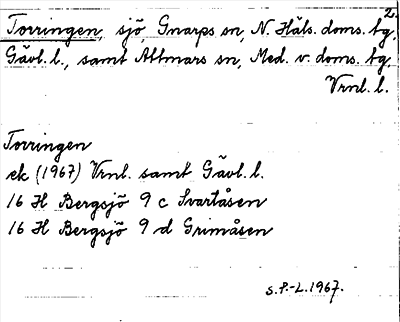 2.
Torringen, sjö, Gnarps sn, N. Häls. doms. tg,
Gävl. l., samt Attmars sn, Med. v. doms. tg,
Vrnl. l.
Torringen
ek (1967) Vrnl. samt Gävl. l.
16 H Bergsjö 9 c Svartåsen
16 H Bergsjö 9 d Grimåsen
S.P.-L. 1967.